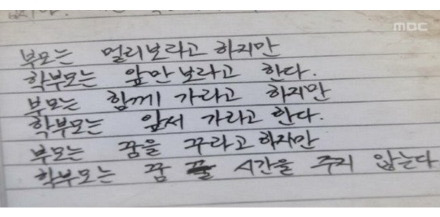 MBC
부모는 멀리보라고 하지만
학부모는 앞만 보라고 한다.
부모는 함께 가라고 하지만
학부모는 앞서 가라고 한다.
부모는 꿈을 꾸라고 하지만
학부모는 꿈 꿀 시간을 주지 않는다